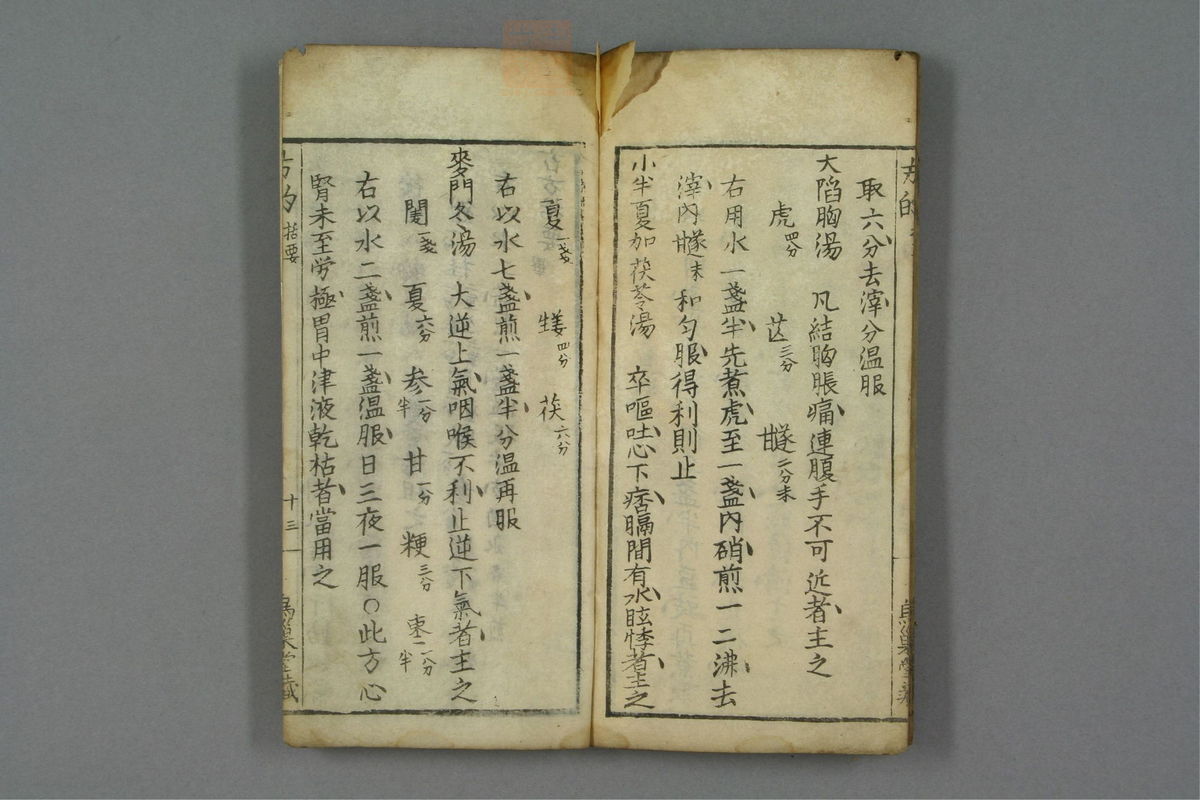 取六分去滓分温服
大陷胸湯 凡結胸脹痛連腹手不可近者主之
虎四分 䒷三分 𦼮二分末
右用水一盞半先煮虎至一盞內硝煎一二沸去
滓內末和匀服得利則止
小半夏加茯苓湯 卒嘔吐心下痞膈間有水眩悸者主之
夏一盞 四分 茯六分
右以水七盞煎一盞半分温再服
麥門冬湯 大逆上氣咽喉不利止逆下氣者主之
一盞 夏六分 参一分半 甘一分 粳三分 棗二分半
右以水二盞煎一盞温服日三夜一服○此方心
腎未至労極胃中津液乾枯者當用之
方的 括要
十三